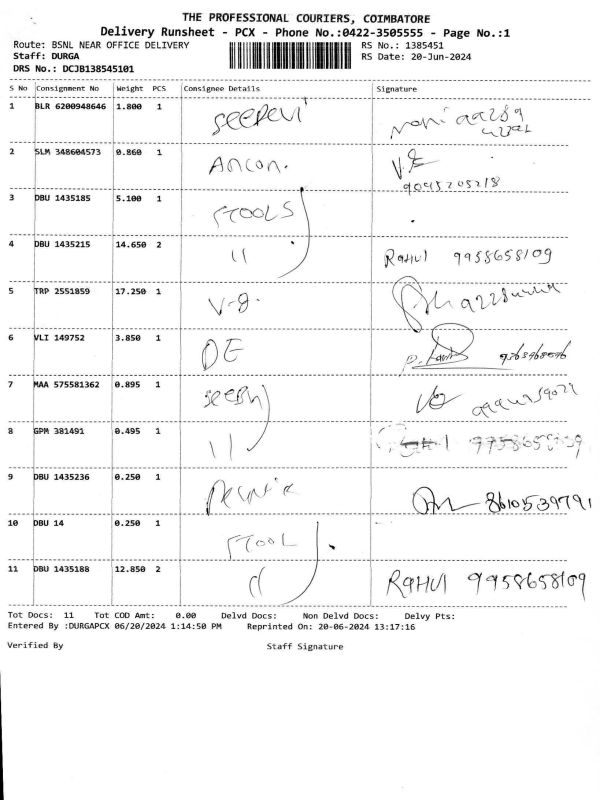 THE PROFESSIONAL COURIERS, COIMBATORE
Delivery Runsheet - PCX - Phone No.:0422-3505555 - Page No.:1
Route: BSNL NEAR OFFICE DELIVERY RS No.: 1385451
Staff: DURGA RS Date: 20-Jun-2024
DRS No.: DCJB138545101
S No Consignment No Weight PCS Consignee Details Signature
1 BLR 6200948646 1.800 1
2 SLM 348604573 0.860 1 Ancon.
3 DBU 1435185 5.100 1 STOOLS
4 DBU 1435215 14.650 2 11 RAHUL 9958658109
5 TRP 2551859 17.250 1
6 VLI 149752 3.850 1 DE
7 MAA 575581362 0.895 1
8 GPM 381491 0.495 1 11
9 DBU 1435236 0.250 1 8610539791
10 DBU 14 0.250 1 STOOL
11 DBU 1435188 12.850 2 11 RAHUL 9958658109
Tot Docs: 11 Tot COD Amt: 0.00 Delvd Docs: Non Delvd Docs: Delvy Pts:
Entered By :DURGAPCX 06/20/2024 1:14:50 PM Reprinted On: 20-06-2024 13:17:16
Verified By Staff Signature